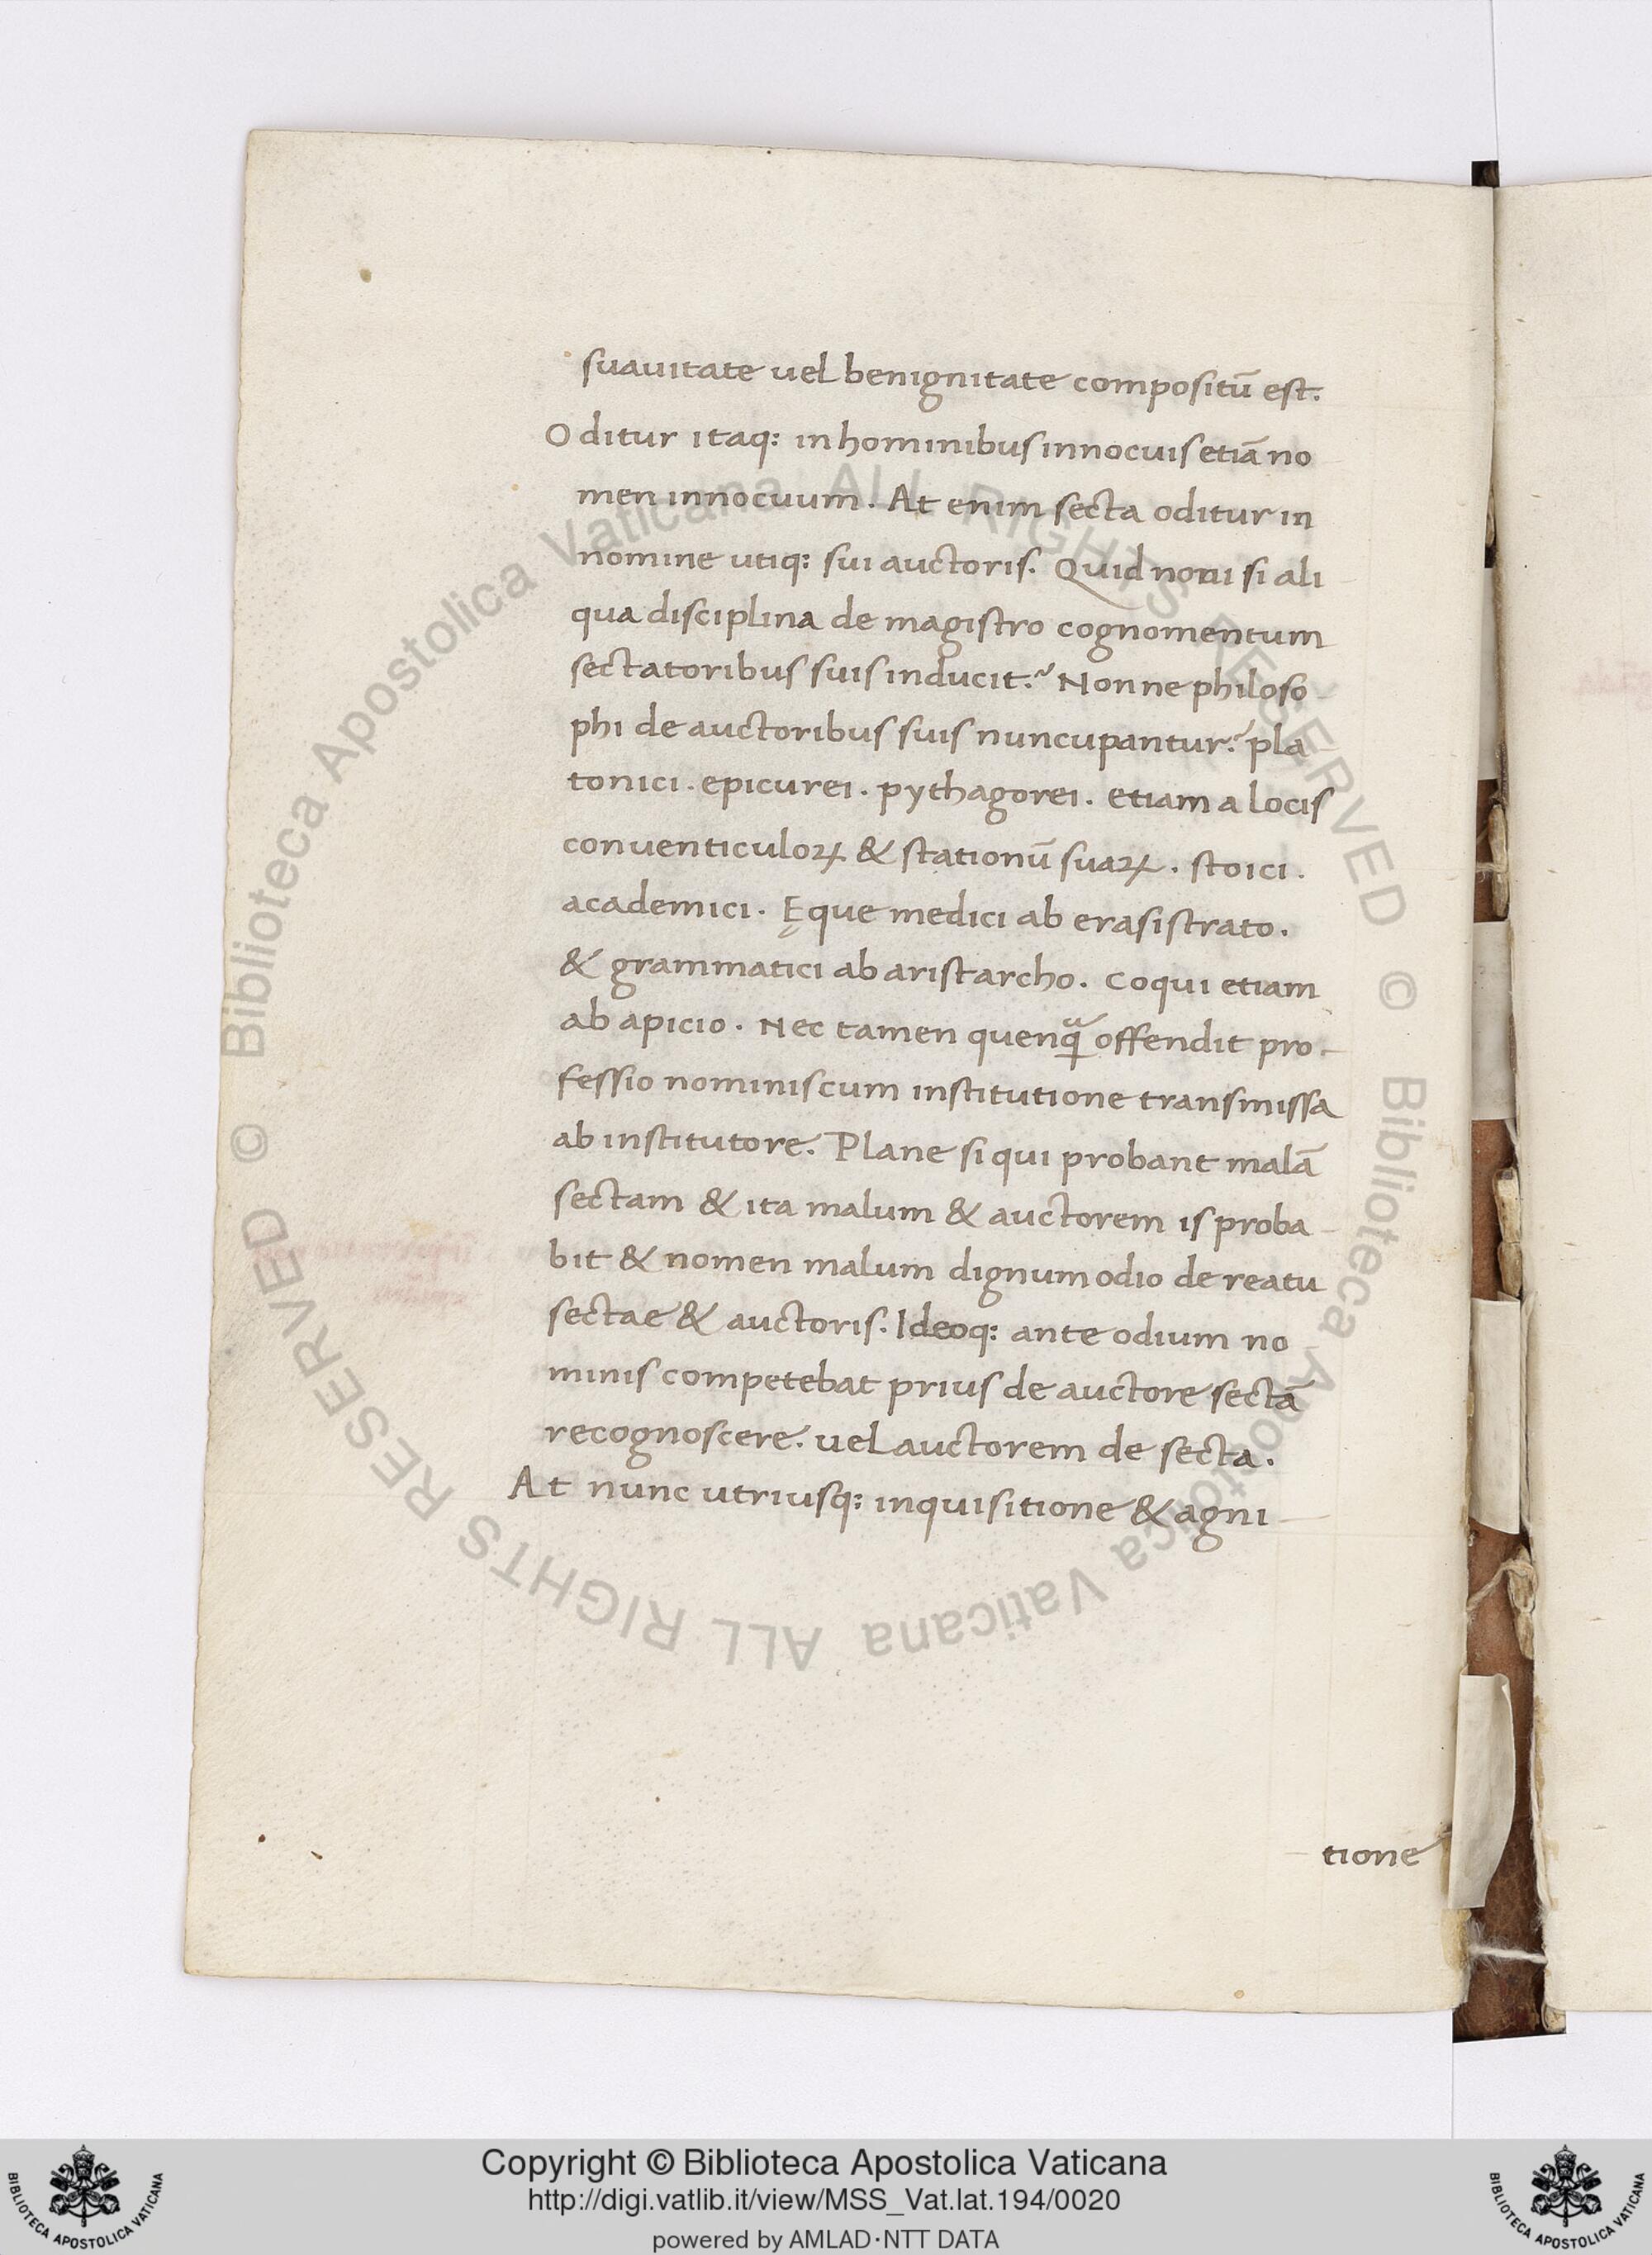 suauitate uel benignitate compositū est.
Oditur itaq: in hominibus innocuis etiā no
men innocuum. At enim secta oditur in
nomine utiq: sui auctoris. Quid noui si ali
qua disciplina de magistro cognomentum
sectatoribus suis inducit? Nonne philoso
phi de auctoribus suis nuncupantur? pla
tonici. epicurei. pythagorei. etiam a locis
conuenticuloꝝ & stationū suaꝝ. stoici.
academici. Ęque medici ab erasistrato.
& grammatici ab aristarcho. coqui etiam
ab apicio. Nec tamen quenqᷓ offendit pro-
fessio nominis cum institutione transmissa
ab institutore. Plane si qui probant malā
sectam & ita malum & auctorem is proba-
bit & nomen malum dignum odio de reatu
sectae & auctoris. Ideoq: ante odium no
minis competebat prius de auctore sectā
recognoscere. uel auctorem de secta.
At nunc utriusq: inquisitione & agni-
tione
© Biblioteca Apostolica Vaticana ALL RIGHTS RESERVED © Biblioteca Apostolica Vaticana ALL RIGHTS RESERVED
Copyright © Biblioteca Apostolica Vaticana
http://digi.vatlib.it/view/MSS_Vat.lat.194/0020
powered by AMLAD·NTT DATA
BIBLIOTECA APOSTOLICA VATICANA
BIBLIOTECA APOSTOLICA VATICANA